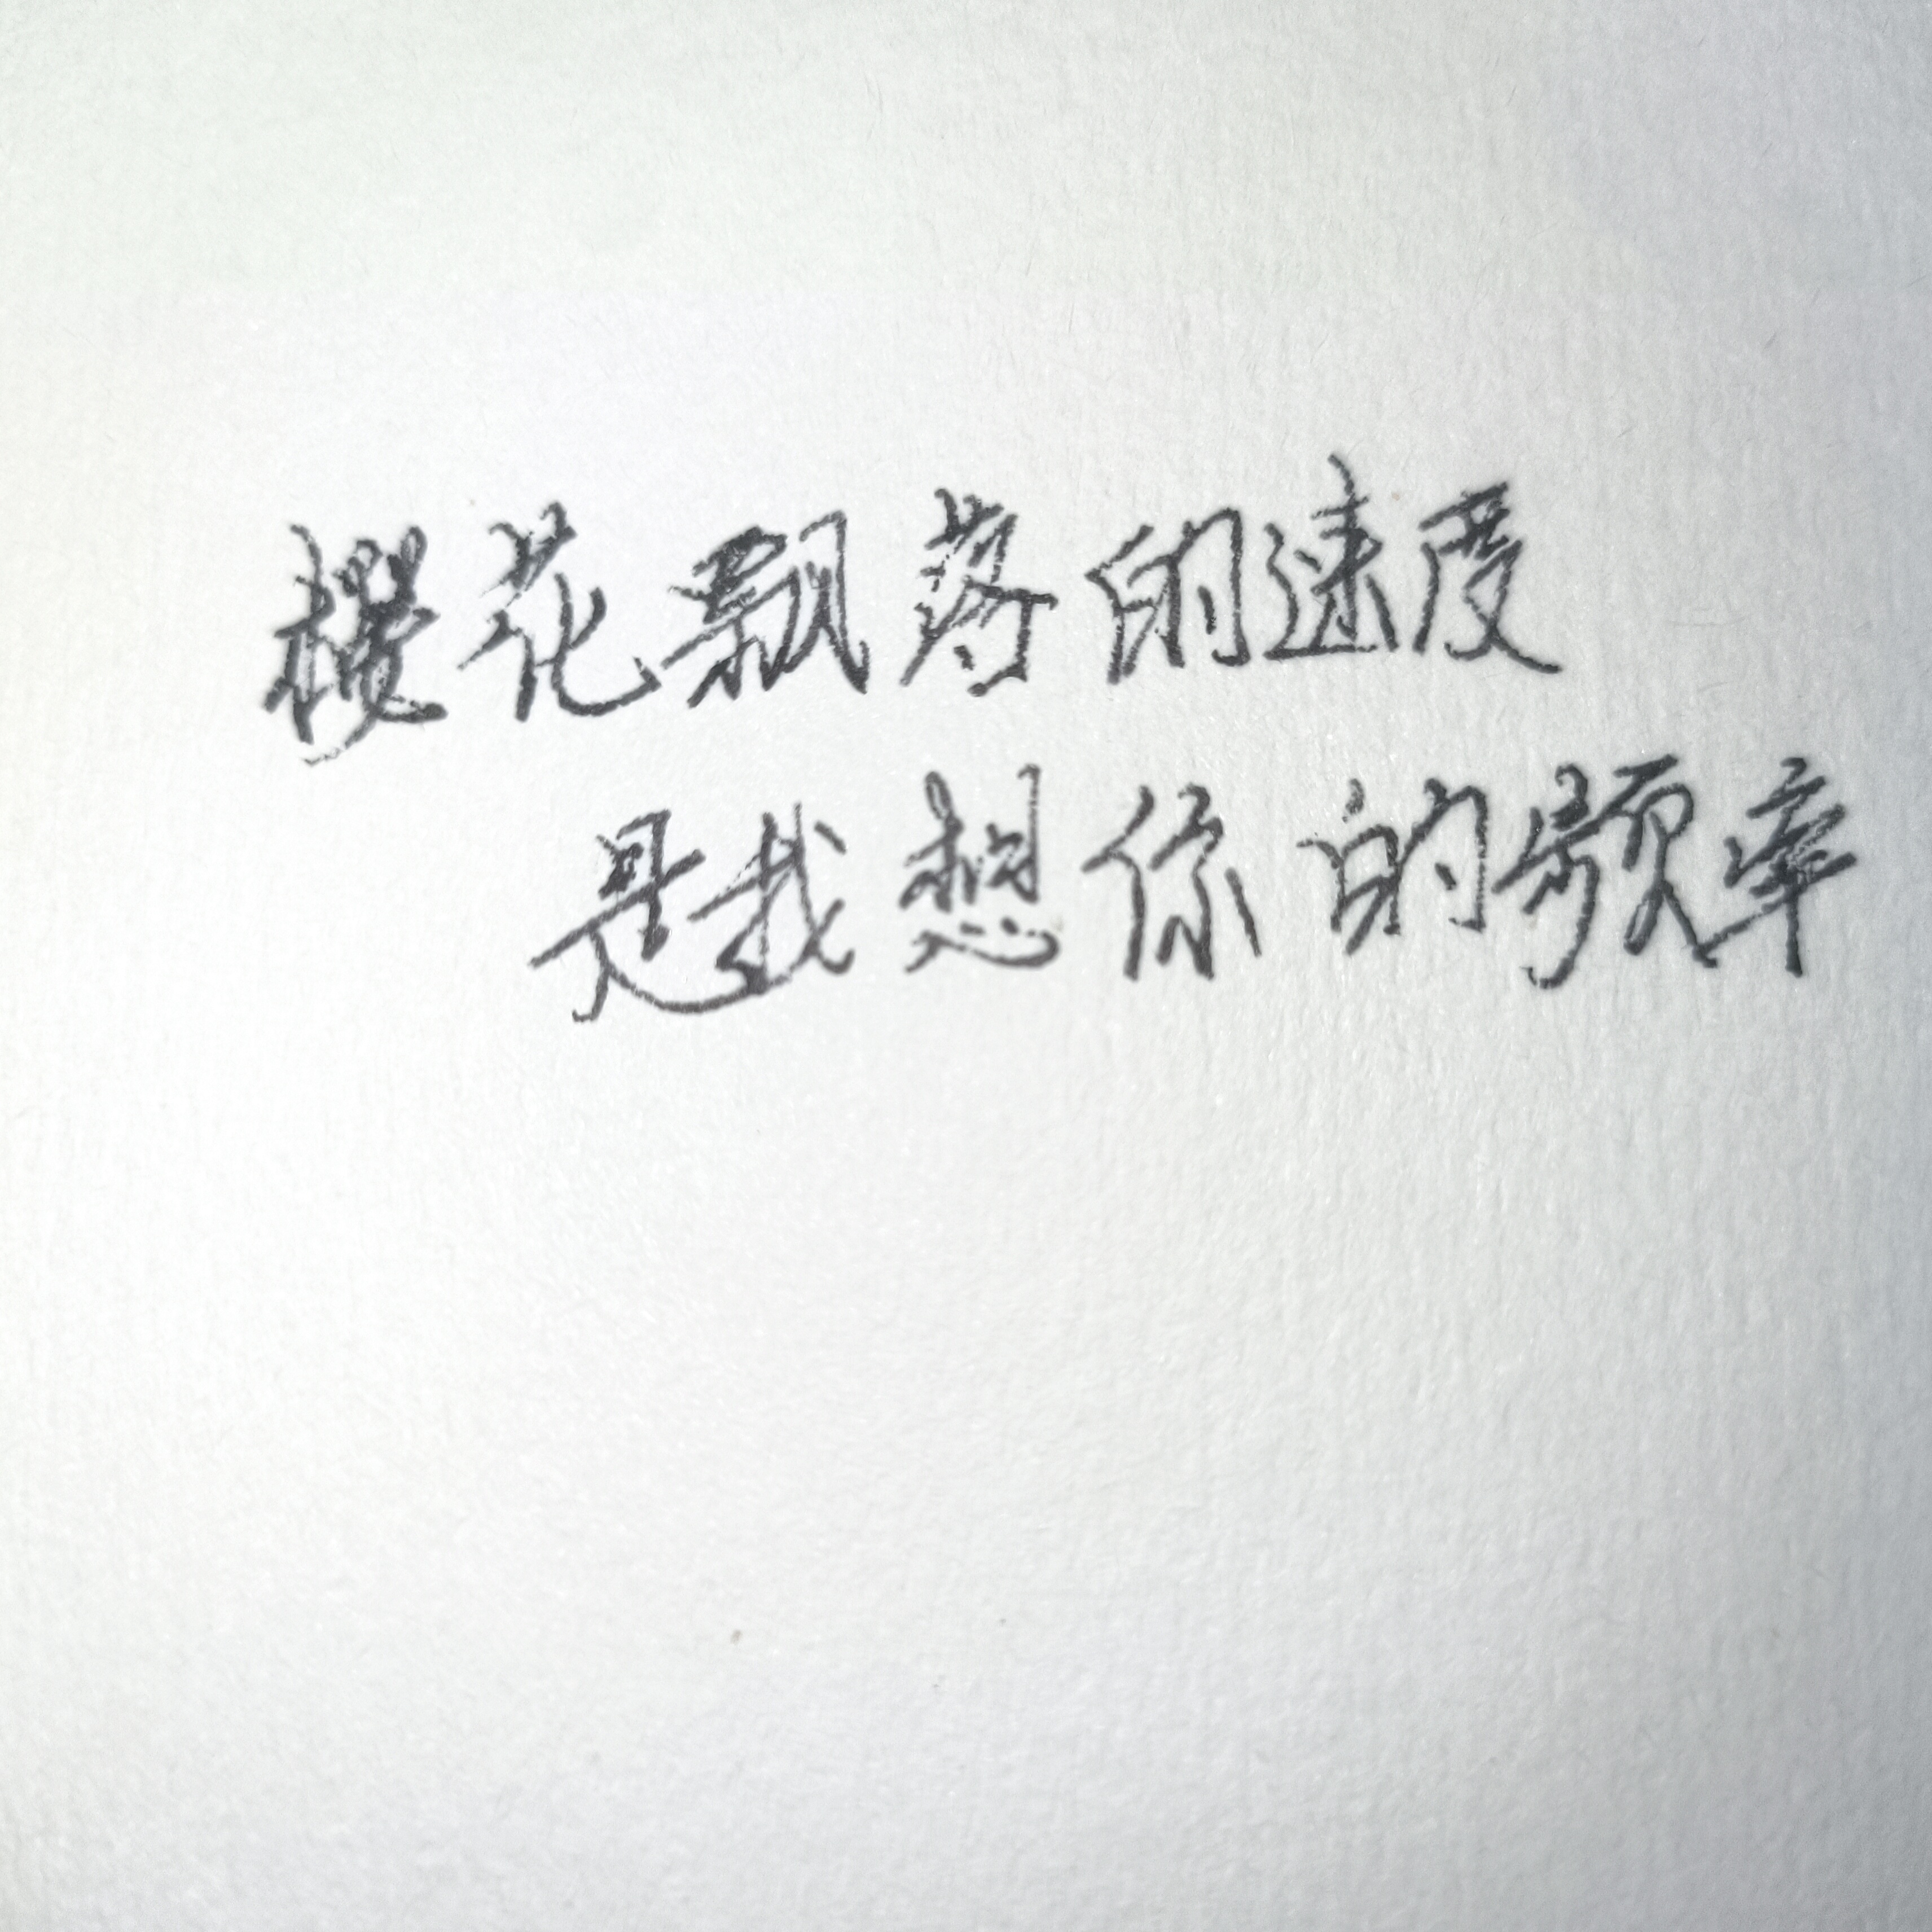 樱花飘落的速度
是我想你的频率